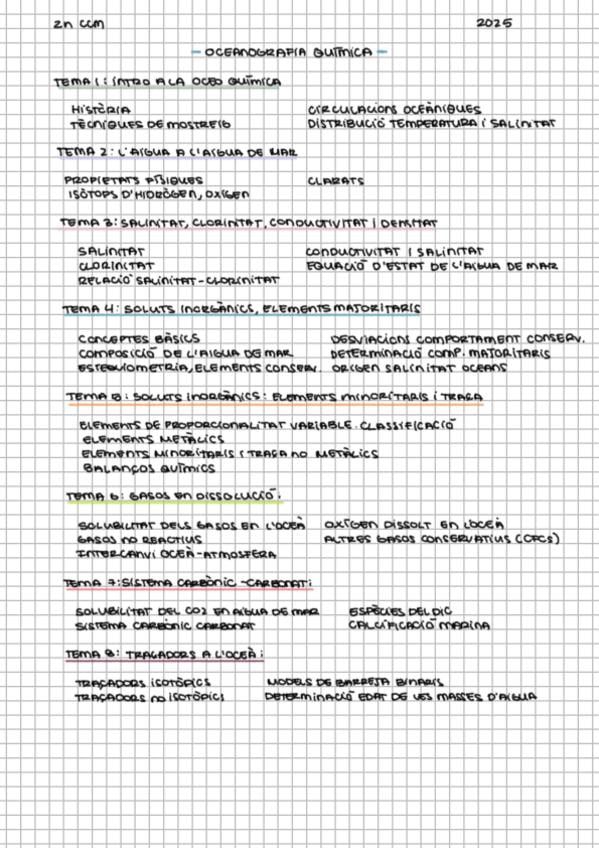 2n CCM 2025
- OCEANOGRAFIA QUÍMICA -
TEMA 1: INTRO A LA OCEO QUÍMICA
HISTÒRIA CIRCULACIONS OCEÀNIQUES
TÈCNIQUES DE MOSTREIG DISTRIBUCIÓ TEMPERATURA I SALINITAT
TEMA 2: L'AIGUA A L'AIGUA DE MAR
PROPIETATS FÍSIQUES CLARATS
ISÒTOPS D'HIDRÒGEN, OXÍGEN
TEMA 3: SALINITAT, CLORINITAT, CONDUCTIVITAT I DENSITAT
SALINITAT CONDUCTIVITAT I SALINITAT
CLORINITAT EQUACIÓ D'ESTAT DE L'AIGUA DE MAR
RELACIÓ SALINITAT-CLORINITAT
TEMA 4: SOLUTS INORGÀNICS, ELEMENTS MAJORITARIS
CONCEPTES BÀSICS DESVIACIONS COMPORTAMENT CONSERV.
COMPOSICIÓ DE L'AIGUA DE MAR DETERMINACIÓ COMP. MAJORITARIS
ESTEQUIOMETRIA, ELEMENTS CONSERV. ORIGEN SALINITAT OCEANS
TEMA 5: SOLUTS INORGÀNICS: ELEMENTS MINORITARIS I TRAÇA
ELEMENTS DE PROPORCIONALITAT VARIABLE. CLASSIFICACIÓ
ELEMENTS METÀL·LICS
ELEMENTS MINORITARIS I TRAÇA NO METÀL·LICS
BALANÇOS QUÍMICS
TEMA 6: GASOS EN DISSOLUCIÓ:
SOLUBILITAT DELS GASOS EN L'OCEÀ OXÍGEN DISSOLT EN L'OCEÀ
GASOS NO REACTIUS ALTRES GASOS CONSERVATIUS (CFCs)
INTERCANVI OCEÀ-ATMOSFERA
TEMA 7: SISTEMA CARBÒNIC-CARBONAT:
SOLUBILITAT DEL CO2 EN AIGUA DE MAR ESPÈCIES DEL DIC
SISTEMA CARBÒNIC CARBONAT CALCIFICACIÓ MARINA
TEMA 8: TRAÇADORS A L'OCEÀ:
TRAÇADORS ISOTÒPICS MODELS DE BARREJA BINARIS
TRAÇADORS NO ISOTÒPICS DETERMINACIÓ EDAT DE LES MASSES D'AIGUA